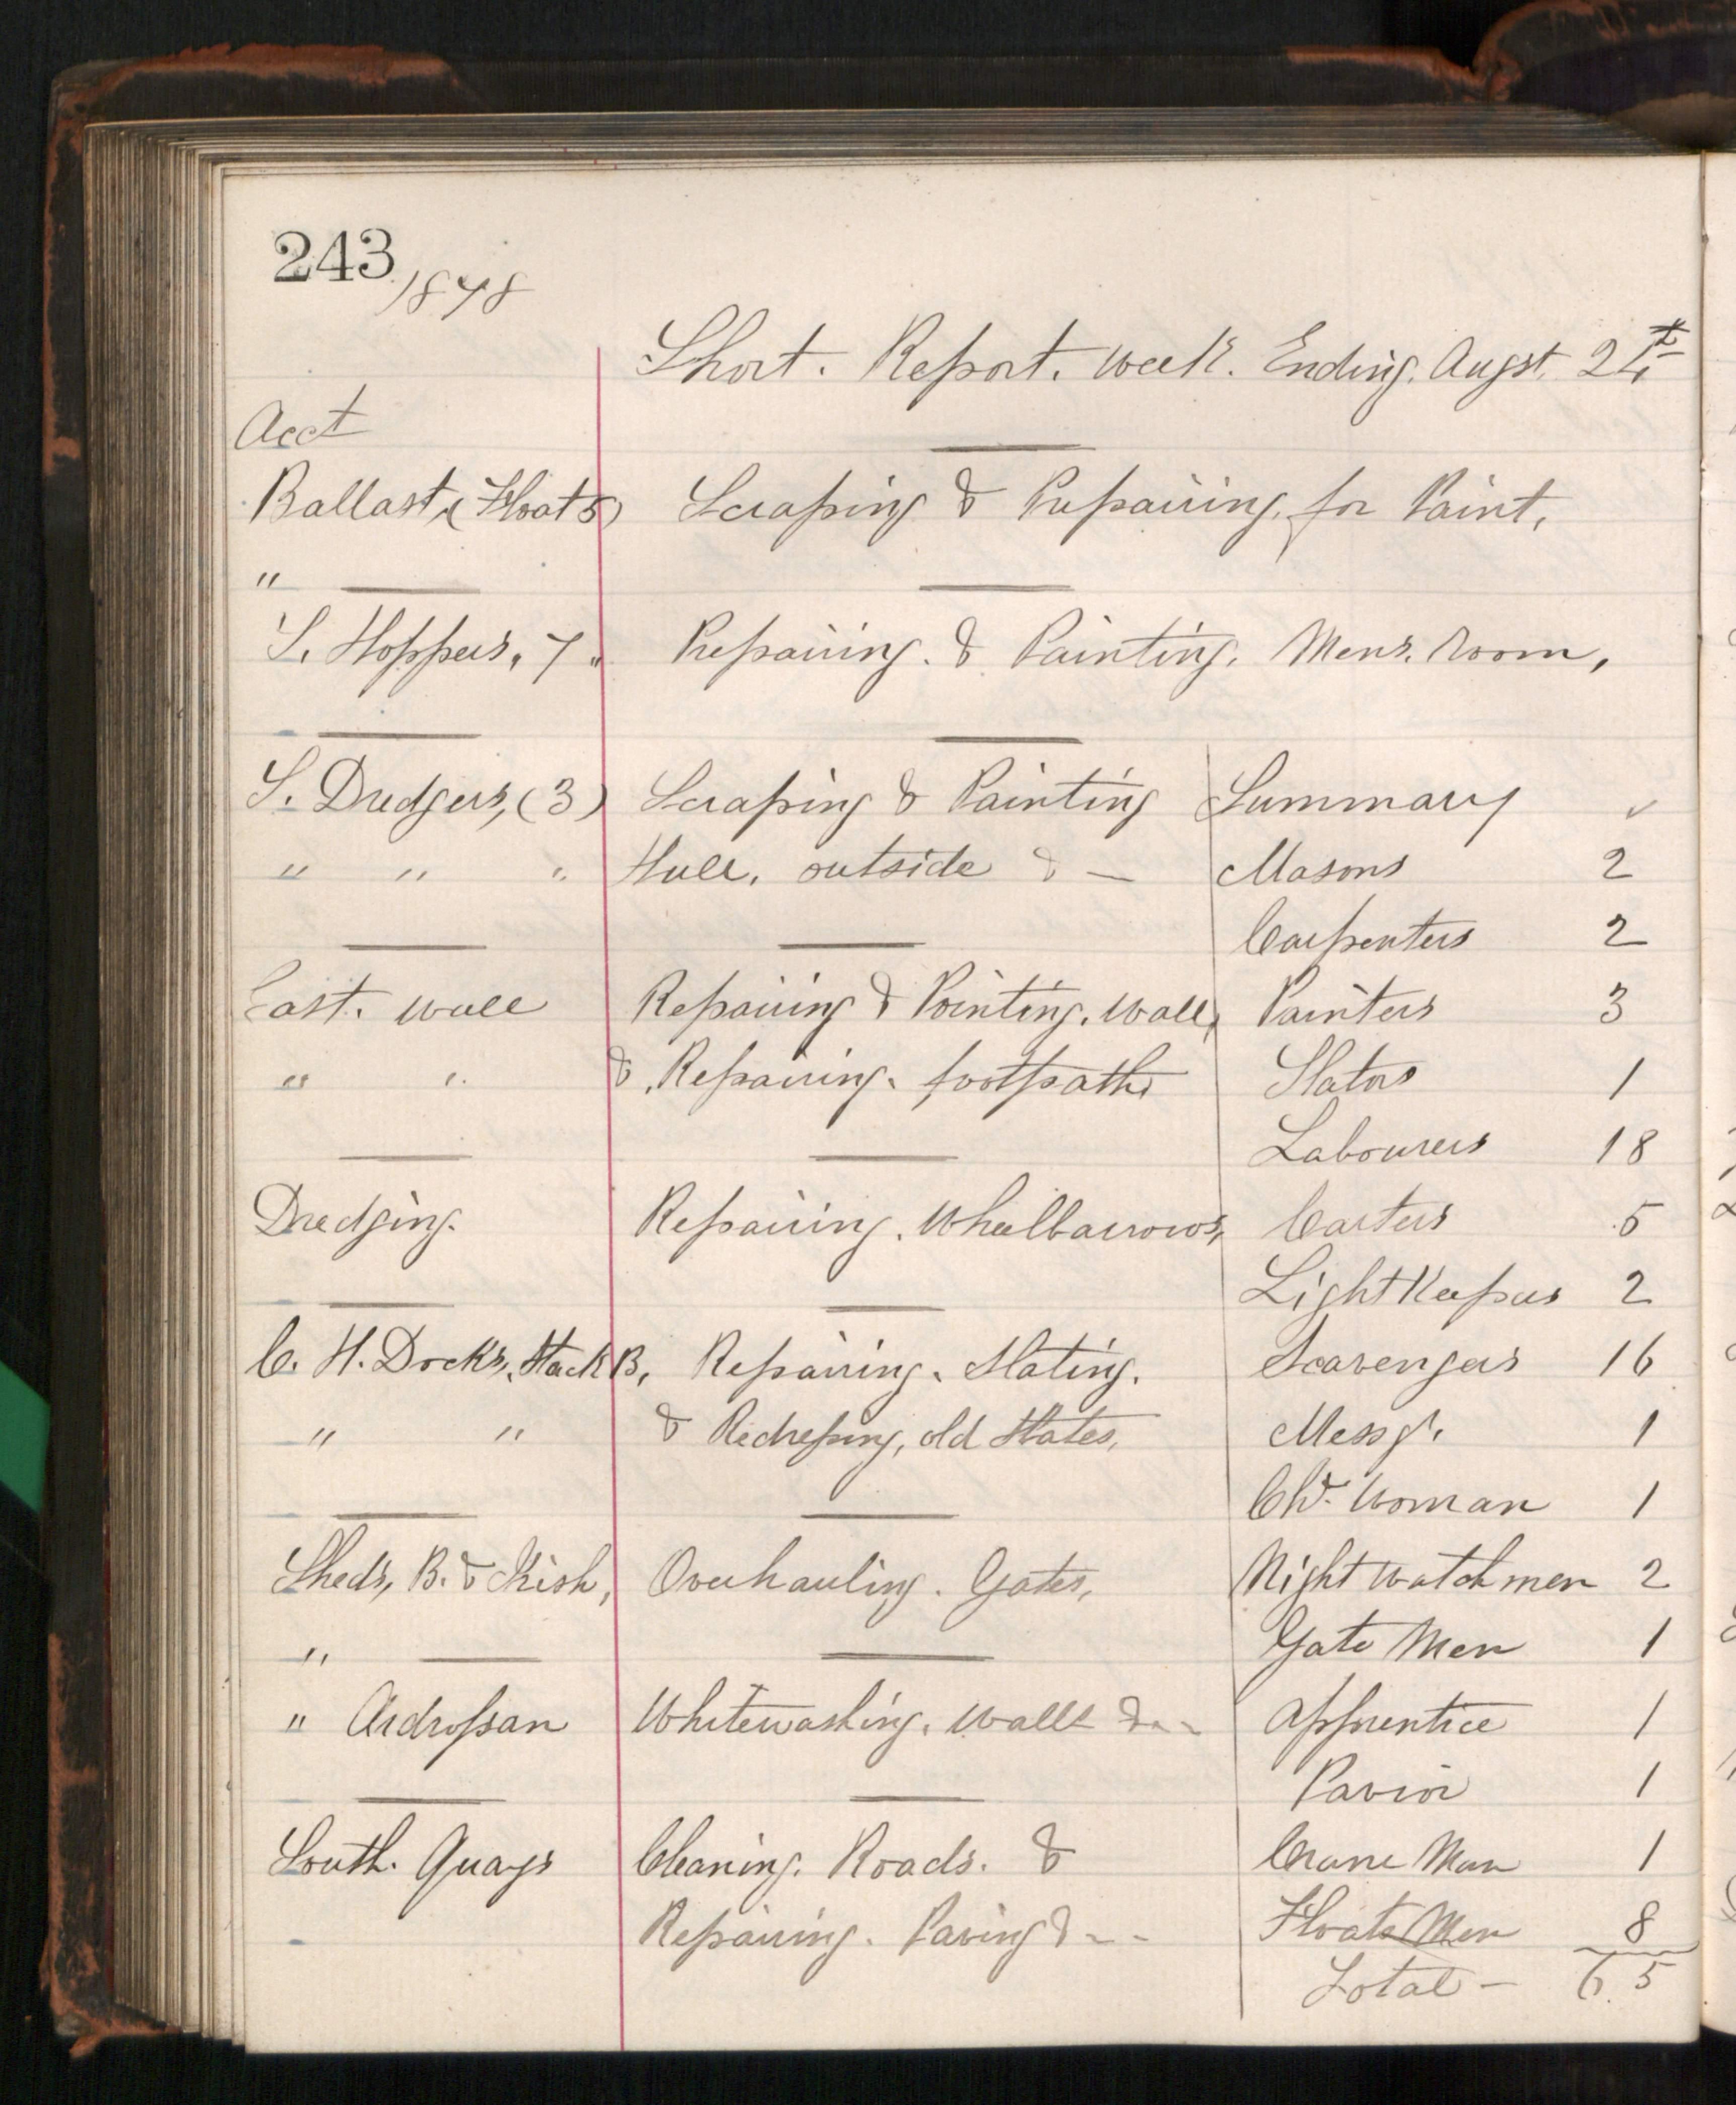 243
1878
Short. Report. Week. Ending. Augst. 24th
Acct
Ballast, (Float 5) Scraping & Preparing, for Paint,
"
S. Hoppers, 7 " Repairing. & Painting. Mens. Room,
S. Dredgers, (3) Scraping & Painting Summary
" " " Hull, outside & — Masons 2
Carpenters 2
East. Wall Repairing & Pointing. Wall, Painters 3
" " & Repairing. footpaths Slators 1
Labourers 18
Dredging. Repairing. Wheelbarrows, Carters 5
Light Keepers 2
C. H. Docks, Stack B, Repairing. Slating. Scavengers 16
" " & Redressing, old Slates, Messgr. 1
Chr. Woman 1
Sheds, B. & Irish, Overhauling. Gates, Night Watchmen 2
" Gate Men 1
" Ardrossan Whitewashing. Walls & - - Apprentice 1
Pavior 1
South. Quays Cleaning. Roads. & Crane Man 1
Repairing. Paving & - - Floats Men 8
Total — 65